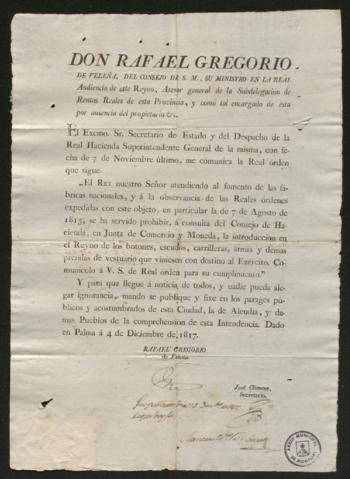 DON RAFAEL GREGORIO
DE VELEÑA, DEL CONSEJO DE S. M., SU MINISTRO EN LA REAL
Audiencia de este Reyno, Asesor general de la Subdelegacion de
Rentas Reales de esta Provincia, y como tal encargado de esta
por ausencia del propietario &c.
El Excmo. Sr. Secretario de Estado y del Despacho de la
Real Hacienda Superintendente General de la misma, con fe-
cha de 7 de Noviembre último, me comunica la Real órden
que sigue.
„El REY nuestro Señor atendiendo al fomento de las fá-
bricas nacionales, y á la observancia de las Reales órdenes
expedidas con este objeto, en particular la de 7 de Agosto de
1815, se ha servido prohibir, á consulta del Consejo de Ha-
cienda, en Junta de Comercio y Moneda, la introduccion en
el Reyno de los botones, escudos, carrilleras, armas y demas
prendas de vestuario que viniesen con destino al Exército. Co-
munícolo á V. S. de Real órden para su cumplimiento."
Y para que llegue á noticia de todos, y nadie pueda ale-
gar ignorancia, mando se publique y fixe en los parages pú-
blicos y acostumbrados de esta Ciudad, la de Alcudia, y de-
mas Pueblos de la comprehension de esta Intendencia. Dado
en Palma á 4 de Diciembre de 1817.
RAFAEL GREGORIO
de Veleña
José Climent,
Secretario.